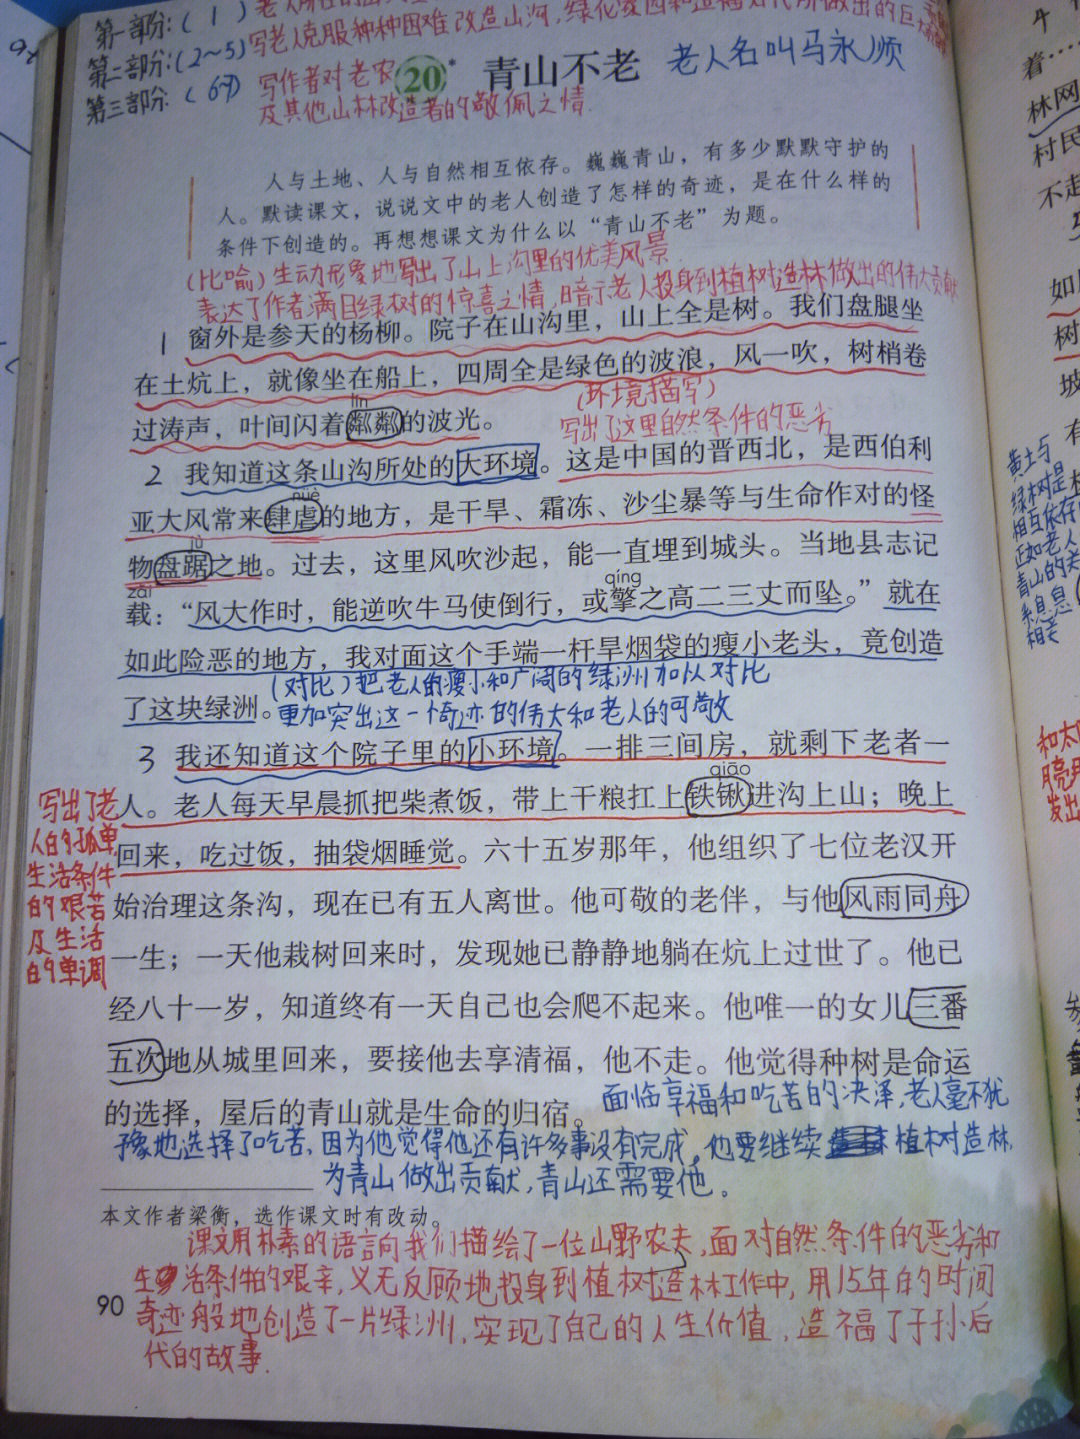 第一部分:(1)
第二部分:(2~5)写老人克服种种困难改造山沟,绿化
第三部分:(6 7)写作者对老农
及其他山林改造者的敬佩之情.
20*
青山不老
老人名叫马永顺
人与土地、人与自然相互依存。巍巍青山,有多少默默守护的
人。默读课文,说说文中的老人创造了怎样的奇迹,是在什么样的
条件下创造的。再想想课文为什么以“青山不老”为题。
(比喻)生动形象地写出了山上沟里的优美风景.
表达了作者满目绿树的惊喜之情,暗示老人投身到植树造林做出的伟大贡献
1 窗外是参天的杨柳。院子在山沟里,山上全是树。我们盘腿坐
在土炕上,就像坐在船上,四周全是绿色的波浪,风一吹,树梢卷
(环境描写)
lín
过涛声,叶间闪着粼粼的波光。
写出了这里自然条件的恶劣
2 我知道这条山沟所处的大环境。这是中国的晋西北,是西伯利
nüè
亚大风常来肆虐的地方,是干旱、霜冻、沙尘暴等与生命作对的怪
jù
物盘踞之地。过去,这里风吹沙起,能一直埋到城头。当地县志记
zǎi
qíng
载:“风大作时,能逆吹牛马使倒行,或擎之高二三丈而坠。”就在
如此险恶的地方,我对面这个手端一杆旱烟袋的瘦小老头,竟创造
(对比)把老人的瘦小和广阔的绿洲加以对比
了这块绿洲。
更加突出这一个奇迹的伟大和老人的可敬
3 我还知道这个院子里的小环境。一排三间房,就剩下老者一
qiāo
人。老人每天早晨抓把柴煮饭,带上干粮扛上铁锹进沟上山;晚上
回来,吃过饭,抽袋烟睡觉。六十五岁那年,他组织了七位老汉开
始治理这条沟,现在已有五人离世。他可敬的老伴,与他风雨同舟
一生;一天他栽树回来时,发现她已静静地躺在炕上过世了。他已
经八十一岁,知道终有一天自己也会爬不起来。他唯一的女儿三番
五次地从城里回来,要接他去享清福,他不走。他觉得种树是命运
的选择,屋后的青山就是生命的归宿。
写出了老
人的孤单
生活条件
的艰苦
及生活
的单调
面临享福和吃苦的决泽,老人毫不犹
予象地选择了吃苦,因为他觉得他还有许多事没有完成,他要继续植树造林,
为青山做出贡献,青山还需要他。
本文作者梁衡,选作课文时有改动。
课文用朴素的语言向我们描绘了一位山野农夫,面对自然条件的恶劣和
生活条件的艰辛,义无反顾地投身到植树造林工作中,用15年的时间
奇迹般地创造了一片绿洲,实现了自己的人生价值,造福了子孙后
代的故事.
90
着……
林网
村民
不走
如
树
坡
有
黄土与
绿树是
相互依存
正如老人
青山的关
系息息
相关
和太
发出